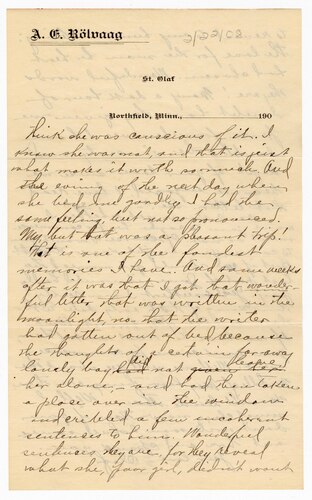 A. E. Rölvaag
2/22/08
St. Olaf
Northfield, Minn., 190
think she was conscious of it. I
know she was not, and that is just
what makes it worth so much. And
the evening of the next day when
she bid me goodby I had the
same feeling, but not so pronounced.
My, but that was a pleasant trip!
That is one of the fondest
memories I have. And some weeks
after it was that I got that wonder-
ful letter that was written in the
moonlight, no that the writer
had gotten out of bed because
the thoughts of a certain far away
lonely boy did not leave
her alone, – and had then taken
a place over in the window
and scribled a few incoherent
sentences to him. Wonderful
sentences they are, for they reveal
what she, poor girl, did n't want